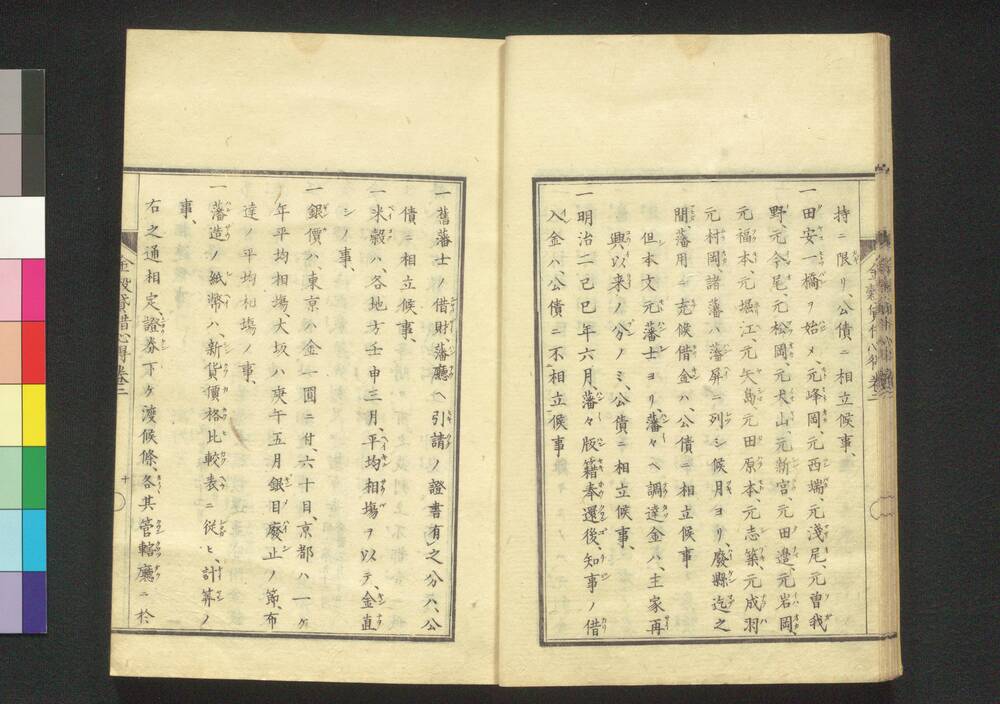 持ニ限リ、公債ニ相立候事、
一田安一橋ヲ始メ、元峰岡、元西端、元淺尾、元曾我
野、元今尾、元松岡、元犬山、元新宮、元田邉、元岩岡、
元福本、元堀江、元矢島、元田原本、元志築、元成羽
元村岡、諸藩ハ藩屏ニ列シ候月ヨリ、廢縣迄之
間、藩用ニ充候借金ハ、公債ニ相立候事
但本文元藩士ヨリ藩々ヘ調達金ハ、主家再
興以来ノ分ノミ、公債ニ相立候事、
一明治二己巳年六月、藩々版籍奉還後、知事ノ借
入金ハ、公債ニ不相立候事
一舊藩士ノ借財、藩廳ヘ引請ノ證書有之分ハ、公
債ニ相立候事、
一米穀ハ、各地方壬申三月、平均相塲ヲ以テ金直
シノ事、
一銀價ハ、東京ハ金一圓ニ付、六十目、京都ハ一ケ
年平均相塲、大坂ハ庚午五月銀目廢止ノ節、布
達ノ平均相塲ノ事、
一藩造ノ紙幣ハ、新貨價格比較表ニ從ヒ、計算ノ
事、
右之通相定、證券下ケ渡候條、各其管轄廳ニ於
金穀貸借心得卷二
十